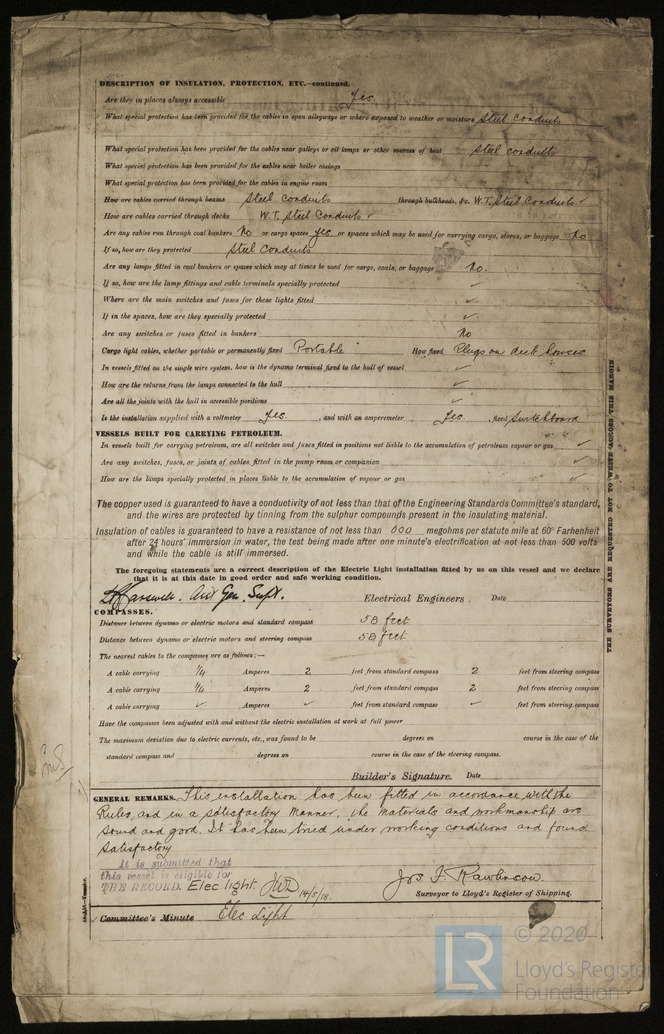 DESCRIPTION OF INSULATION, PROTECTION, ETC.—continued.
Are they in places always accessible Yes
What special protection has been provided for the cables in open alleyways or where exposed to weather or moisture Steel Conduits
What special protection has been provided for the cables near galleys or oil lamps or other sources of heat Steel conduits
What special protection has been provided for the cables near boiler casings
What special protection has been provided for the cables in engine room
How are cables carried through beams Steel conduits through bulkheads, &c. W.T. Steel Conduits ✓
How are cables carried through decks W.T. Steel Conduits ✓
Are any cables run through coal bunkers No or cargo spaces yes or spaces which may be used for carrying cargo, stores, or baggage No.
If so, how are they protected Steel Conduits
Are any lamps fitted in coal bunkers or spaces which may at times be used for cargo, coals, or baggage No.
If so, how are the lamp fittings and cable terminals specially protected ✓
Where are the main switches and fuses for these lights fitted ✓
If in the spaces, how are they specially protected ✓
Are any switches or fuses fitted in bunkers No
Cargo light cables, whether portable or permanently fixed Portable How fixed Plugs on deck houses
In vessels fitted on the single wire system, how is the dynamo terminal fixed to the hull of vessel ✓
How are the returns from the lamps connected to the hull ✓
Are all the joints with the hull in accessible positions ✓
Is the installation supplied with a voltmeter Yes. , and with an amperemeter Yes , fixed Switchboard
VESSELS BUILT FOR CARRYING PETROLEUM.
In vessels built for carrying petroleum, are all switches and fuses fitted in positions not liable to the accumulation of petroleum vapour or gas ✓
Are any switches, fuses, or joints of cables fitted in the pump room or companion ✓
How are the lamps specially protected in places liable to the accumulation of vapour or gas ✓
The copper used is guaranteed to have a conductivity of not less than that of the Engineering Standards Committee's standard,
and the wires are protected by tinning from the sulphur compounds present in the insulating material.
Insulation of cables is guaranteed to have a resistance of not less than 600 megohms per statute mile at 60° Farhenheit
after 24 hours' immersion in water, the test being made after one minute's electrification at not less than 500 volts
and while the cable is still immersed.
The foregoing statements are a correct description of the Electric Light installation fitted by us on this vessel and we declare
that it is at this date in good order and safe working condition.
Gen. Supt. Electrical Engineers Date
COMPASSES.
Distance between dynamo or electric motors and standard compass 58 feet
Distance between dynamo or electric motors and steering compass 58 feet
The nearest cables to the compasses are as follows:—
A cable carrying 1/4 Amperes 2 feet from standard compass 2 feet from steering compass
A cable carrying 1/4 Amperes 2 feet from standard compass 2 feet from steering compass
A cable carrying ✓ Amperes ✓ feet from standard compass ✓ feet from steering compass
Have the compasses been adjusted with and without the electric installation at work at full power
The maximum deviation due to electric currents, etc., was found to be degrees on course in the case of the
standard compass and degrees on course in the case of the steering compass.
Builder's Signature. Date
GENERAL REMARKS. This installation has been fitted in accordance with the
Rules, and in a satisfactory manner, the materials and workmanship are
sound and good. It has been tried under working conditions and found
satisfactory
It is submitted that
this vessel is eligible for
THE RECORD. Elec light. JWD 14/5/18.
Jos F. Rawlinson.
Surveyor to Lloyd's Register of Shipping.
Committee's Minute Elec Light
THE SURVEYORS ARE REQUESTED NOT TO WRITE ACROSS THIS MARGIN.
LR
© 2020
Lloyd's Register
Foundation